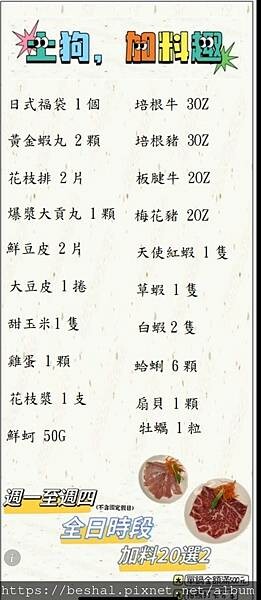 土狗，加料趣
日式福袋 1 個
黃金蝦丸 2 顆
花枝排 2 片
爆漿大貢丸 1 顆
鮮豆皮 2 片
大豆皮 1 捲
甜玉米 1 隻
雞蛋 1 顆
花枝漿 1 支
鮮蚵 50G
培根牛 3OZ
培根豬 3OZ
板腱牛 2OZ
梅花豬 2OZ
天使紅蝦 1 隻
草蝦 1 隻
白蝦 2 隻
蛤蜊 6 顆
扇貝 1 顆
牡蠣 1 粒
週一至週四(不含國定假日)
全日時段
加料20選2
單鍋金額滿500元
https://beshal.pixnet.net/album